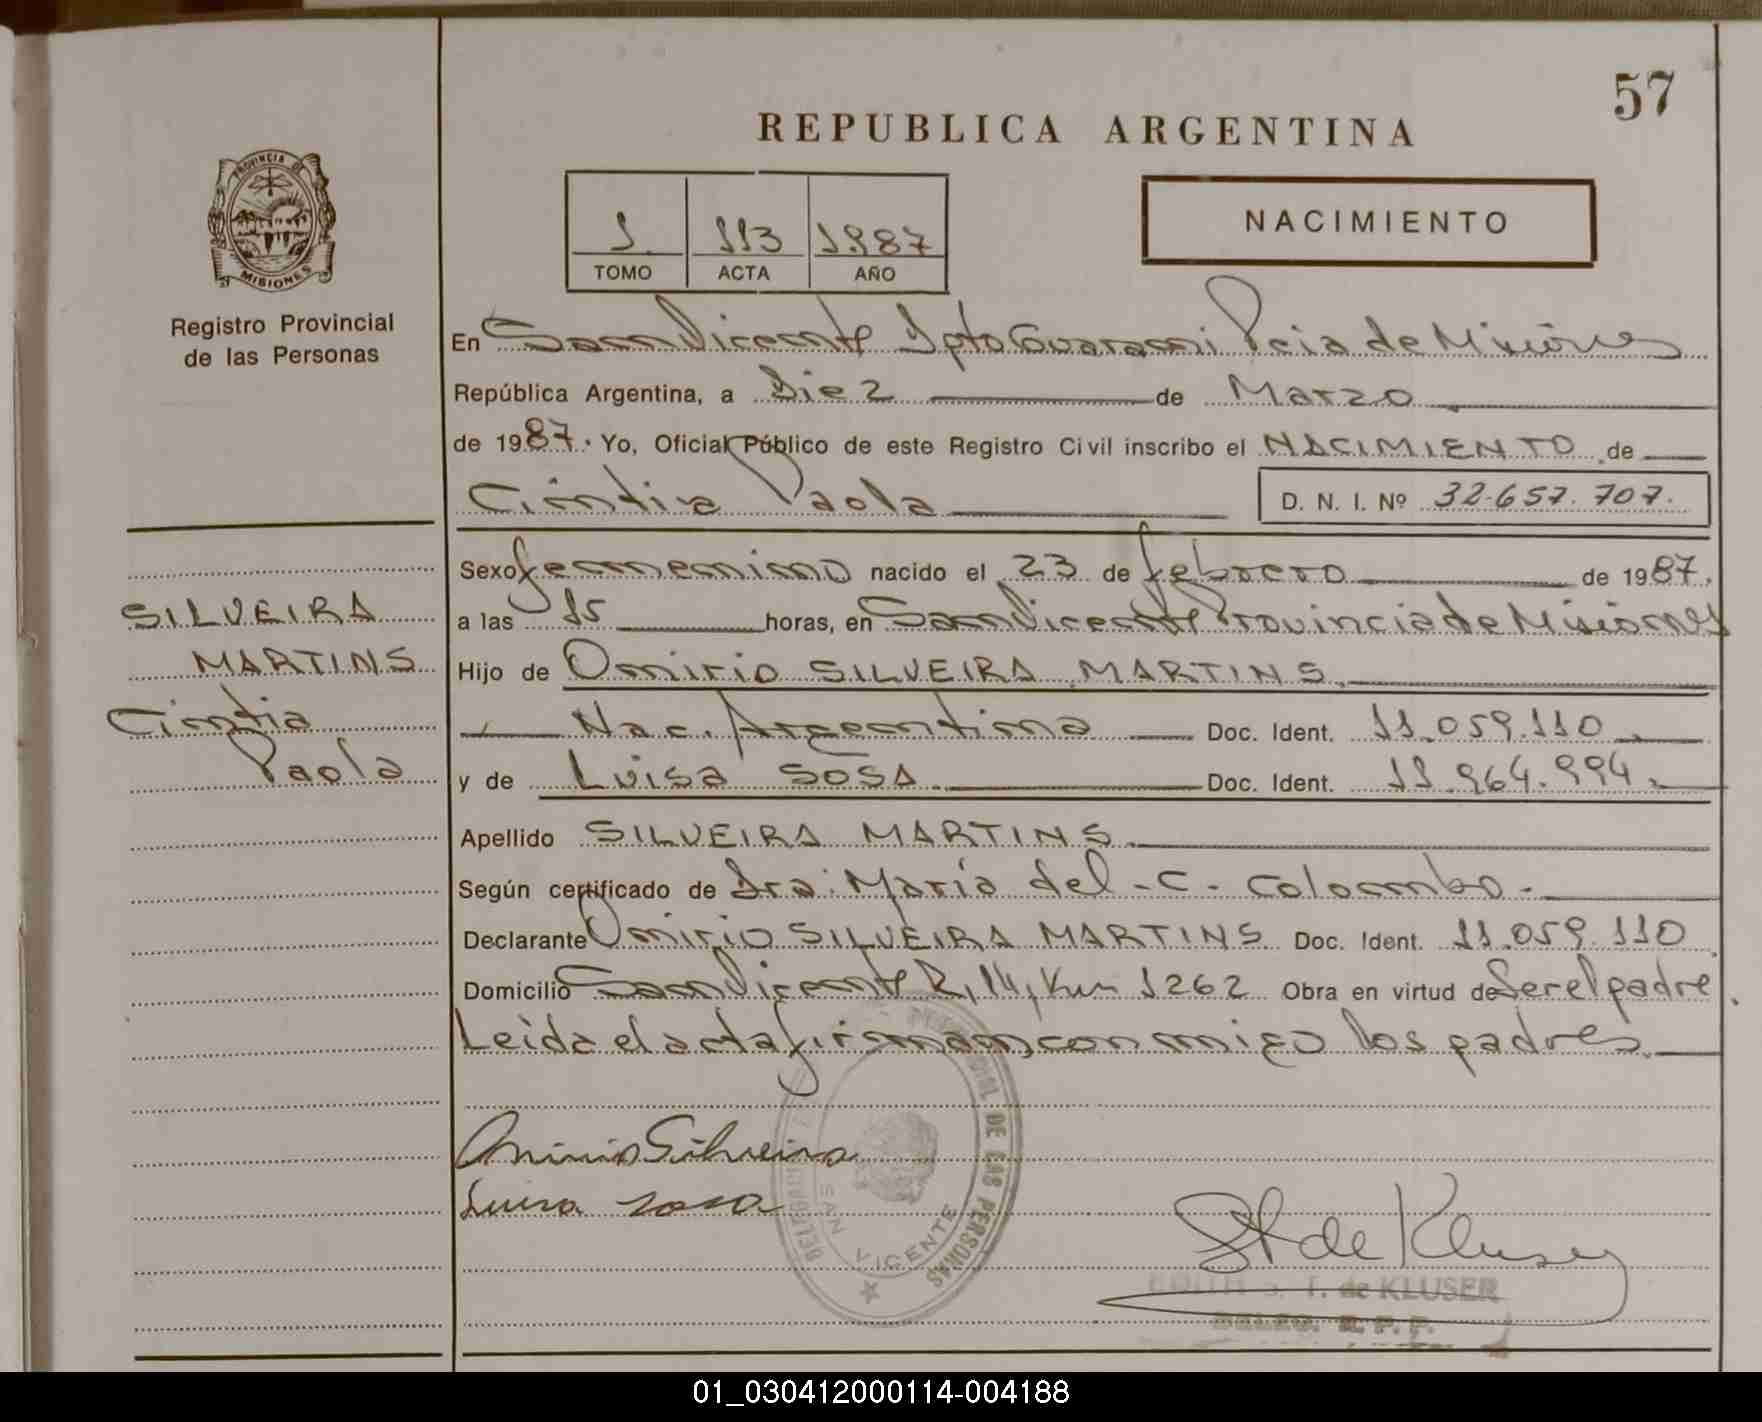 57
REPUBLICA ARGENTINA
PROVINCIA DE
MISIONES
Registro Provincial
de las Personas
1 113 1987
TOMO ACTA AÑO
NACIMIENTO
En San Vicente Dpto Guarani Pcia de Misiones
República Argentina, a Diez de Marzo
de 1987. Yo, Oficial Público de este Registro Civil inscribo el NACIMIENTO de
Cintia Paola D. N. I. Nº 32.657.707.
Sexo femenino nacido el 23 de febrero de 1987.
a las 15 horas, en San Vicente Provincia de Misiones
Hijo de Omirio SILVEIRA MARTINS
Nac. Argentina Doc. Ident. 11.059.110
y de Luisa SOSA Doc. Ident. 11.964.994.
Apellido SILVEIRA MARTINS
Según certificado de Dra. María del - C. Colombo.
Declarante Omirio SILVEIRA MARTINS Doc. Ident. 11.059.110
Domicilio San Vicente R, 14, Km 1262 Obra en virtud de Ser el padre
Leida el acta firman conmigo los padres.
SILVEIRA
MARTINS
Cintia
Paola
Omirio Silveira
Luisa sosa
DE LAS PERSONAS
SAN VICENTE
St de Kluser
T. de KLUSER
DELEG. R. P. P.
01_030412000114-004188